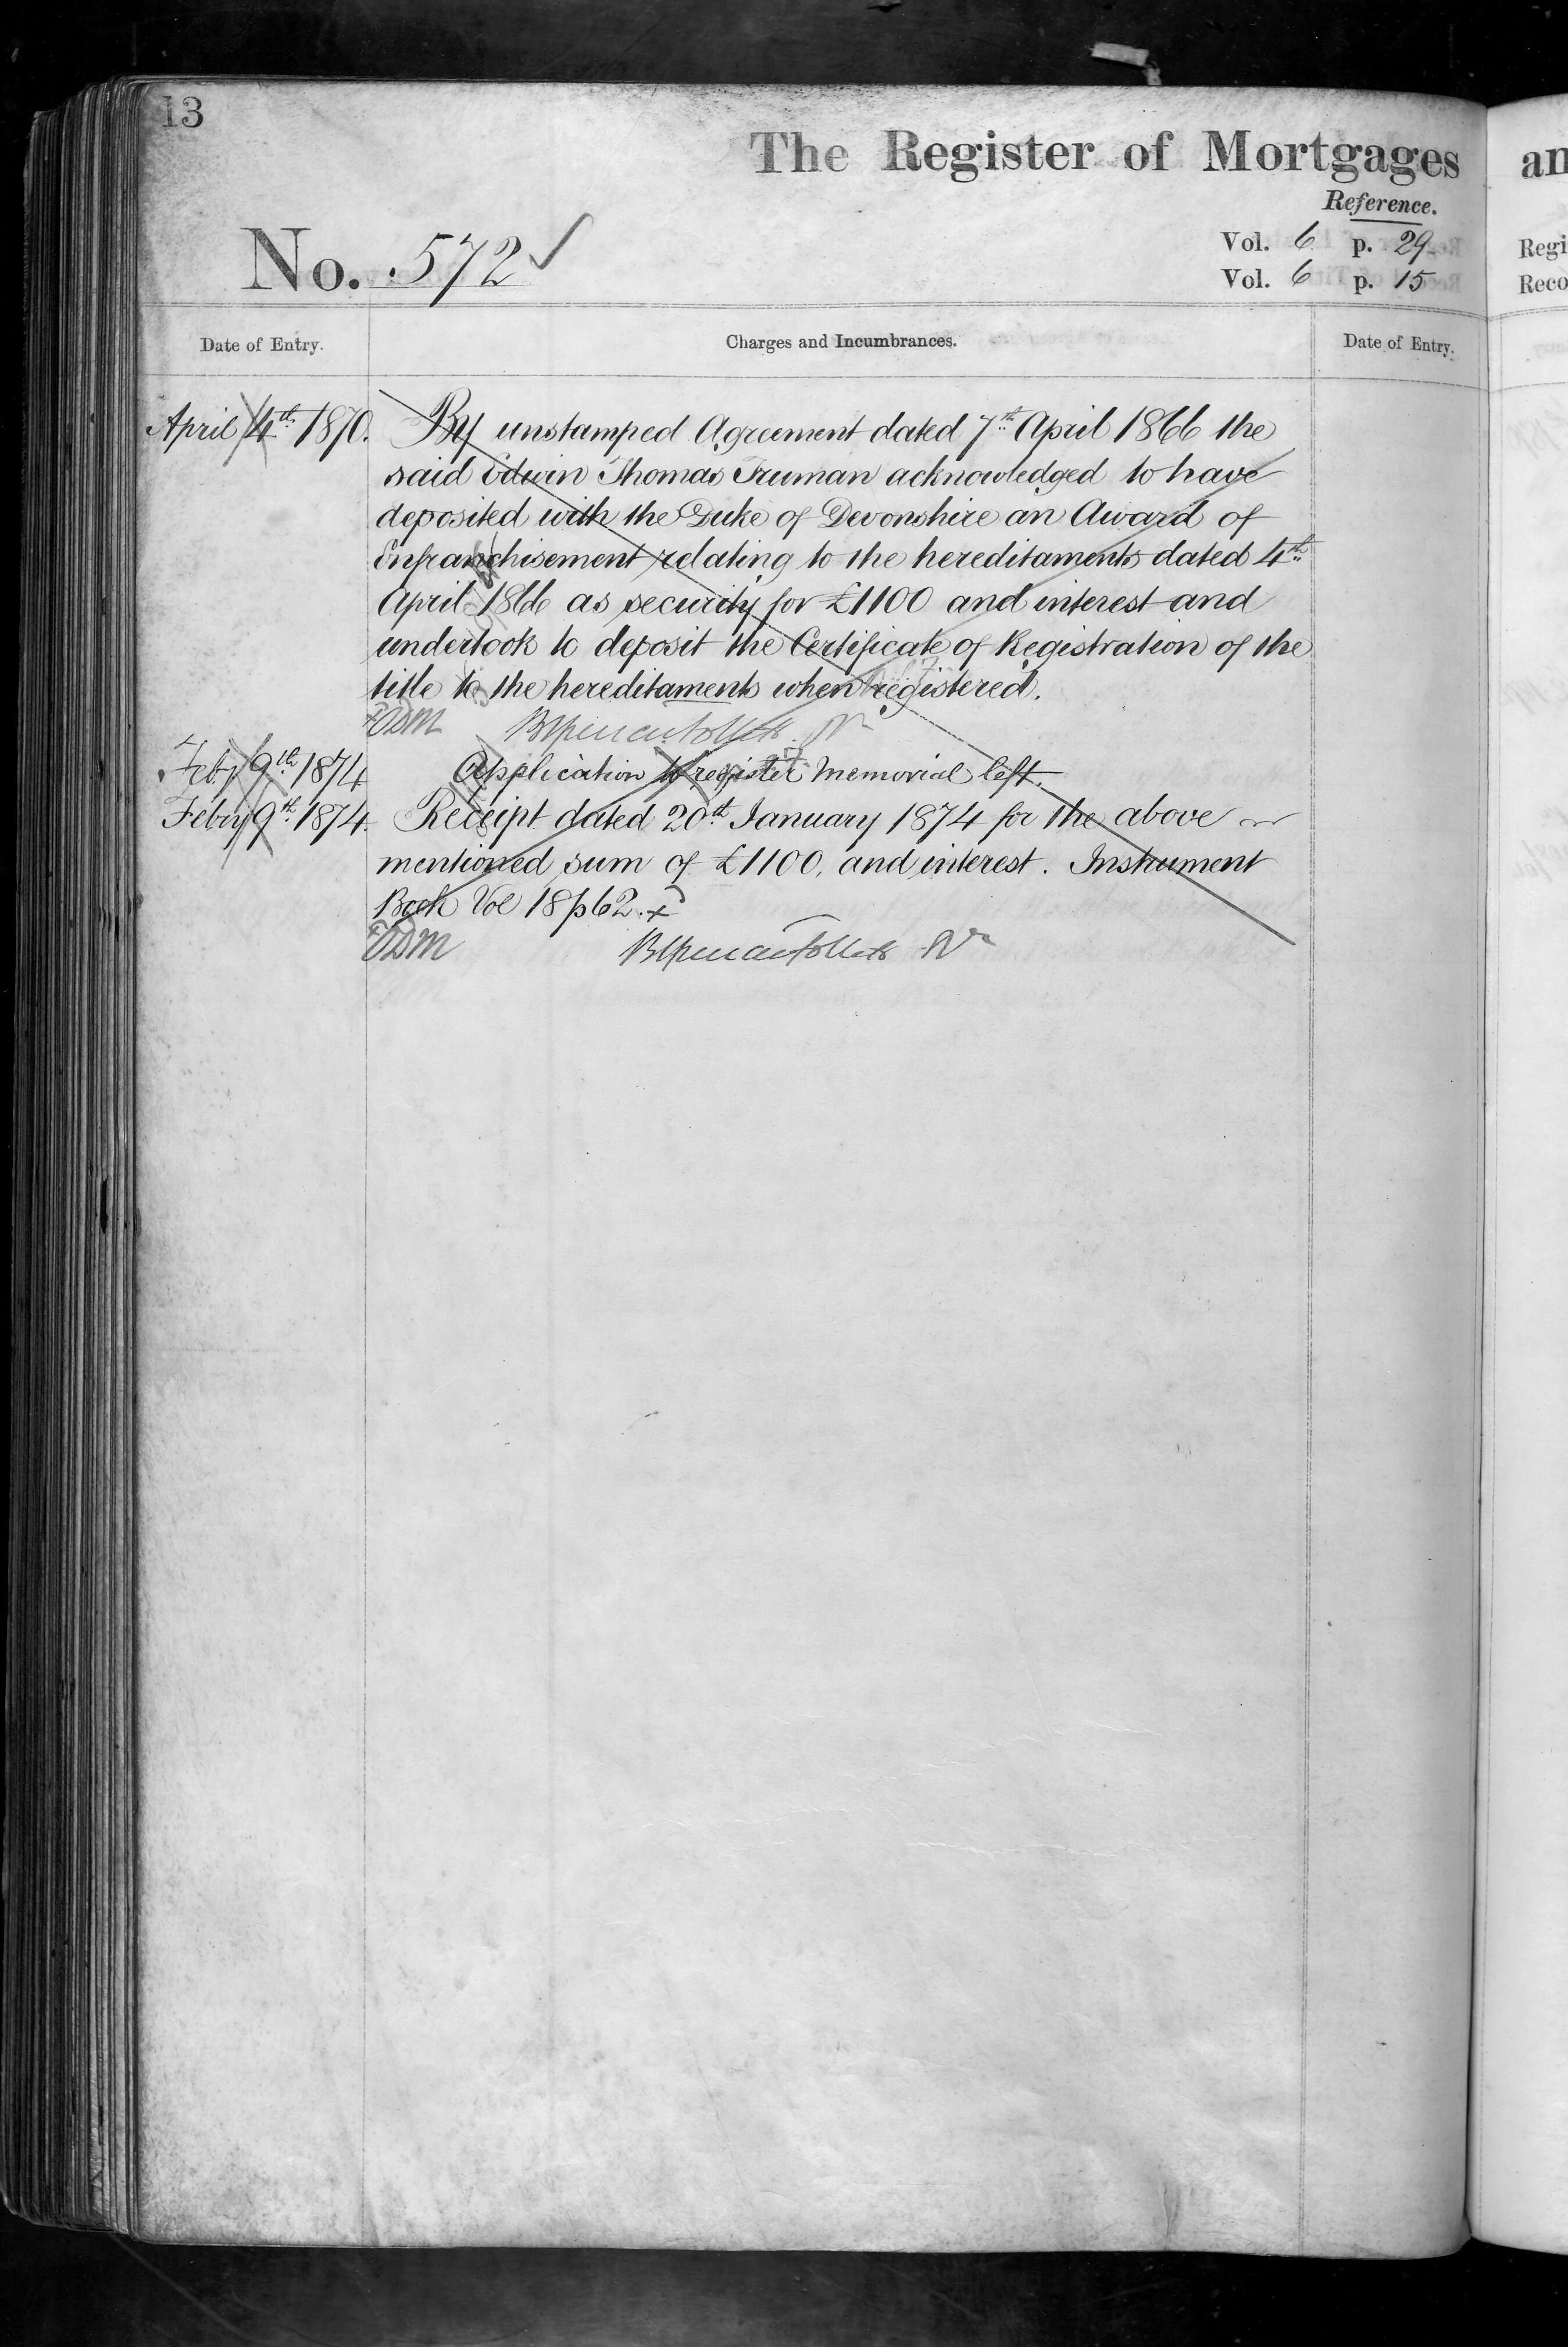 13
The Register of Mortgages
Reference.
No. 572 ✓
Vol. 6 p. 29
Vol. 6 p. 15
Date of Entry.
Charges and Incumbrances.
Date of Entry.
April 4th 1870.
By unstamped Agreement dated 7th April 1866 the
said Edwin Thomas Truman acknowledged to have
deposited with the Duke of Devonshire an Award of
Enfranchisement relating to the hereditaments dated 4th
April 1866 as security for £1100 and interest and
undertook to deposit the Certificate of Registration of the
title to the hereditaments when registered.
Feby 9th 1874
Application to register Memorial left.
Febry 9th 1874.
Receipt dated 20th January 1874 for the above
mentioned sum of £1100, and interest. Instrument
Book Vol 18 p 62. +
an
Regi
Reco